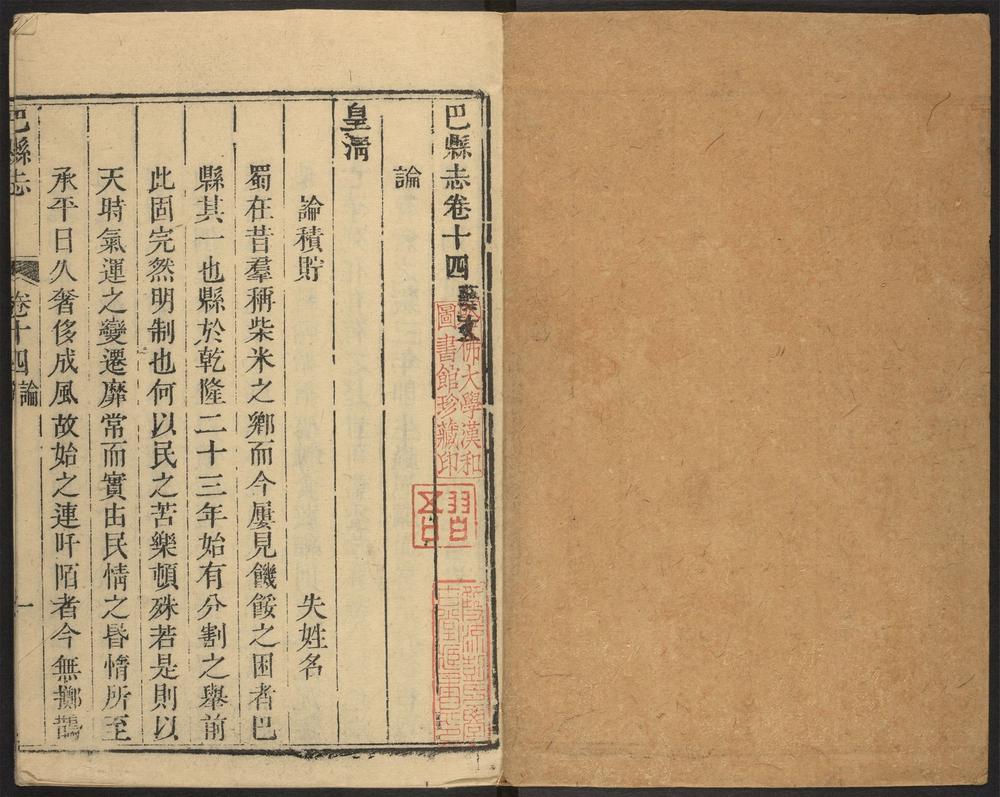 巴縣志卷十四 藝文
論
皇淸
論積貯 失姓名
蜀在昔羣稱柴米之鄉而今屢見饑餒之困者巴
縣其一也縣於乾隆二十三年始有分割之舉前
此固完然明制也何以民之苦樂頓殊若是則以
天時氣運之變遷靡常而實由民情之昬惰所至
承平日久奢侈成風故始之連阡陌者今無擲
巴縣志 卷十四 論 一
佛大學漢和
圖書館珍藏印